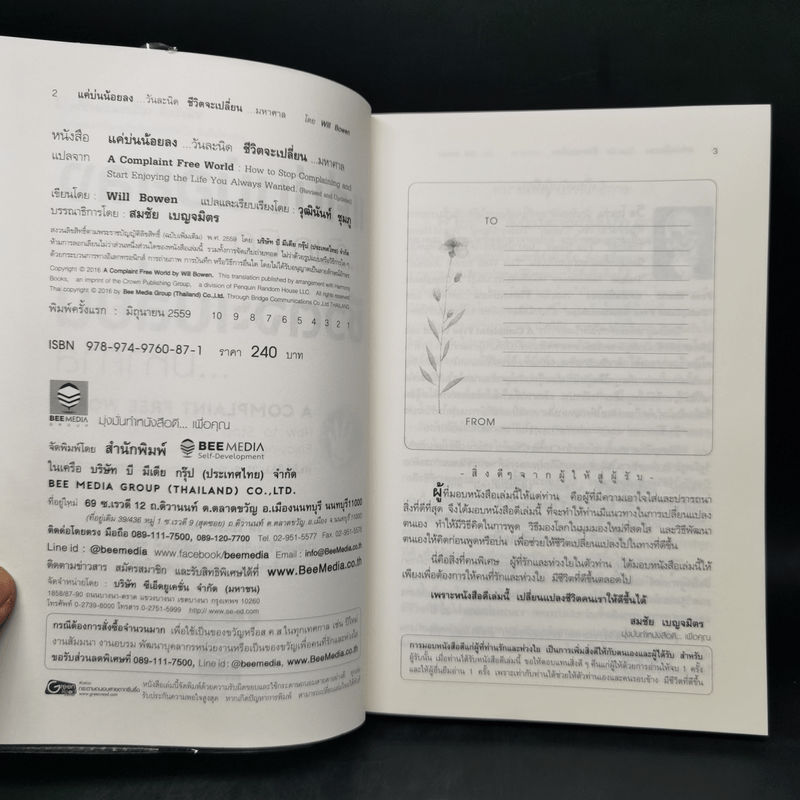 2 แค่บ่นน้อยลง ...วันละนิด ชีวิตจะเปลี่ยน ...มหาศาล โดย Will Bowen
หนังสือ แค่บ่นน้อยลง ...วันละนิด ชีวิตจะเปลี่ยน ...มหาศาล
แปลจาก A Complaint Free World : How to Stop Complaining and
Start Enjoying the Life You Always Wanted. (Revised and Updated)
เขียนโดย : Will Bowen แปลและเรียบเรียงโดย : วุฒินันท์ ชุมภู
บรรณาธิการโดย : สมชัย เบญจมิตร
สงวนลิขสิทธิ์ตามพระราชบัญญัติลิขสิทธิ์ (ฉบับเพิ่มเติม) พ.ศ. 2559 โดย บริษัท บี มีเดีย กรุ๊ป (ประเทศไทย) จำกัด
ห้ามการลอกเลียนไม่ว่าส่วนหนึ่งส่วนใดของหนังสือเล่มนี้ รวมทั้งการจัดเก็บถ่ายทอด ไม่ว่ารูปแบบหรือวิธีการใดๆ
ด้วยกระบวนการทางอิเลกทรอนิกส์ การถ่ายภาพ การบันทึก หรือวิธีการอื่นใด โดยไม่ได้รับอนุญาตเป็นลายลักษณ์อักษร
Copyright © 2016 A Complaint Free World by Will Bowen. This translation published by arrangement with Harmony
Books, an imprint of the Crown Publishing Group, a division of Penguin Random House LLC. All rights reserved.
Thai copyright © 2016 by Bee Media Group (Thailand) Co.,Ltd. Through Bridge Communications Co.,Ltd THAILAND.
พิมพ์ครั้งแรก : มิถุนายน 2559 10 9 8 7 6 5 4 3 2 1
ISBN 978-974-9760-87-1 ราคา 240 บาท
BEE MEDIA
GROUP
มุ่งมั่นทำหนังสือดี... เพื่อคุณ
จัดพิมพ์โดย สำนักพิมพ์ BEE MEDIA
Self-Development
ในเครือ บริษัท บี มีเดีย กรุ๊ป (ประเทศไทย) จำกัด
BEE MEDIA GROUP (THAILAND) CO.,LTD.
ที่อยู่ใหม่ 69 ซ.เรวดี 12 ถ.ติวานนท์ ต.ตลาดขวัญ อ.เมืองนนทบุรี นนทบุรี 11000
(ที่อยู่เดิม 39/436 หมู่ 1 ซ.เรวดี 9 (สุดซอย) ถ.ติวานนท์ ต.ตลาดขวัญ อ.เมือง จ.นนทบุรี 11000)
ติดต่อโดยตรง มือถือ 089-111-7500, 089-120-7700 Tel. 02-951-5577 Fax. 02-951-
Line id : @beemedia www.facebook/beemedia Email : info@BeeMedia.co.th
ติดตามข่าวสาร สมัครสมาชิก และรับสิทธิพิเศษได้ที่ www.BeeMedia.co.th
จัดจำหน่ายโดย : บริษัท ซีเอ็ดยูเคชั่น จำกัด (มหาชน)
1858/87-90 ถนนบางนา-ตราด แขวงบางนา เขตบางนา กรุงเทพฯ 10260
โทรศัพท์ 0-2739-8000 โทรสาร 0-2751-5999 http:// www.se-ed.com
กรณีต้องการสั่งซื้อจำนวนมาก เพื่อใช้เป็นของขวัญหรือส.ค.ส.ในทุกเทศกาล เช่น ปีใหม่
งานสัมมนา งานอบรม พัฒนาบุคลากรหน่วยงานหรือเป็นของขวัญเพื่อคนที่รักและห่วงใย
ขอรับส่วนลดพิเศษที่ 089-111-7500, Line id : @beemedia, www.BeeMedia.co.th
หนังสือเล่มนี้จัดพิมพ์ด้วยความรับผิดชอบและใช้กระดาษถนอมสายตาอย่างดี ทุกเล่ม
รับประกันความพอใจสูงสุด หากเกิดปัญหาการพิมพ์ สามารถเปลี่ยนเล่มใหม่ได้ทันที
3
TO
FROM
- สิ่งดีๆจากผู้ให้สู่ผู้รับ -
ผู้ที่มอบหนังสือเล่มนี้ให้แด่ท่าน คือผู้ที่มีความเอาใจใส่และปรารถนา
สิ่งที่ดีที่สุด จึงได้มอบหนังสือเล่มนี้ ที่จะทำให้ท่านมีแนวทางในการเปลี่ยนแปลง
ตนเอง ทำให้มีวิธีคิดในการพูด วิธีมองโลกในมุมมองใหม่ที่สดใส และวิธีพัฒนา
ตนเองให้คิดก่อนพูดหรือบ่น เพื่อช่วยให้ชีวิตเปลี่ยนแปลงไปในทางที่ดีขึ้น
นี่คือสิ่งที่คนพิเศษ ผู้ที่รักและห่วงใยในตัวท่าน ได้มอบหนังสือเล่มนี้ให้
เพียงเพื่อต้องการให้คนที่รักและห่วงใย มีชีวิตที่ดีขึ้นตลอดไป
เพราะหนังสือดีเล่มนี้ เปลี่ยนแปลงชีวิตคนเราให้ดีขึ้นได้
สมชัย เบญจมิตร
มุ่งมั่นทำหนังสือดี... เพื่อคุณ
การมอบหนังสือดีแก่ผู้ที่ท่านรักและห่วงใย เป็นการเพิ่มสิ่งดีให้กับตนเองและผู้ได้รับ สำหรับ
ผู้รับนั้น เมื่อท่านได้รับหนังสือเล่มนี้ ขอให้ตอบแทนสิ่งดี ๆ คืนแก่ผู้ให้ด้วยการอ่านให้จบ 1 ครั้ง
และให้ผู้อื่นยืมอ่าน 1 ครั้ง เพราะเท่ากับท่านได้ช่วยให้ตัวท่านเองและคนรอบข้าง มีชีวิตที่ดีขึ้น